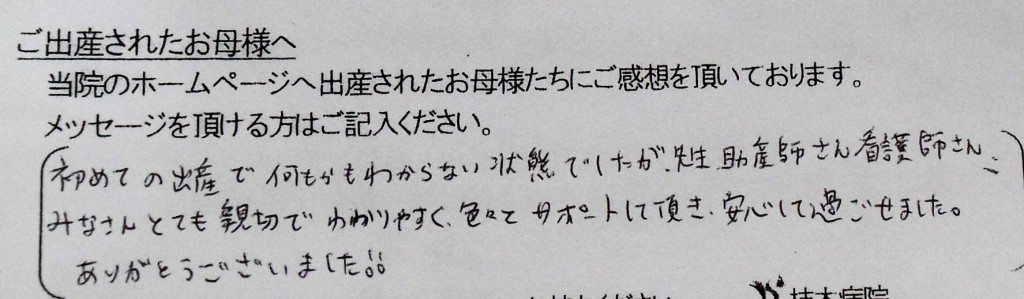 ご出産されたお母様へ
当院のホームページへ出産されたお母様たちにご感想を頂いております。
メッセージを頂ける方はご記入ください。
初めての出産で何もかもわからない状態でしたが、先生、助産師さん看護師さん、
みなさんとても親切でわかりやすく、色々とサポートして頂き、安心して過ごせました。
ありがとうございました。
病院